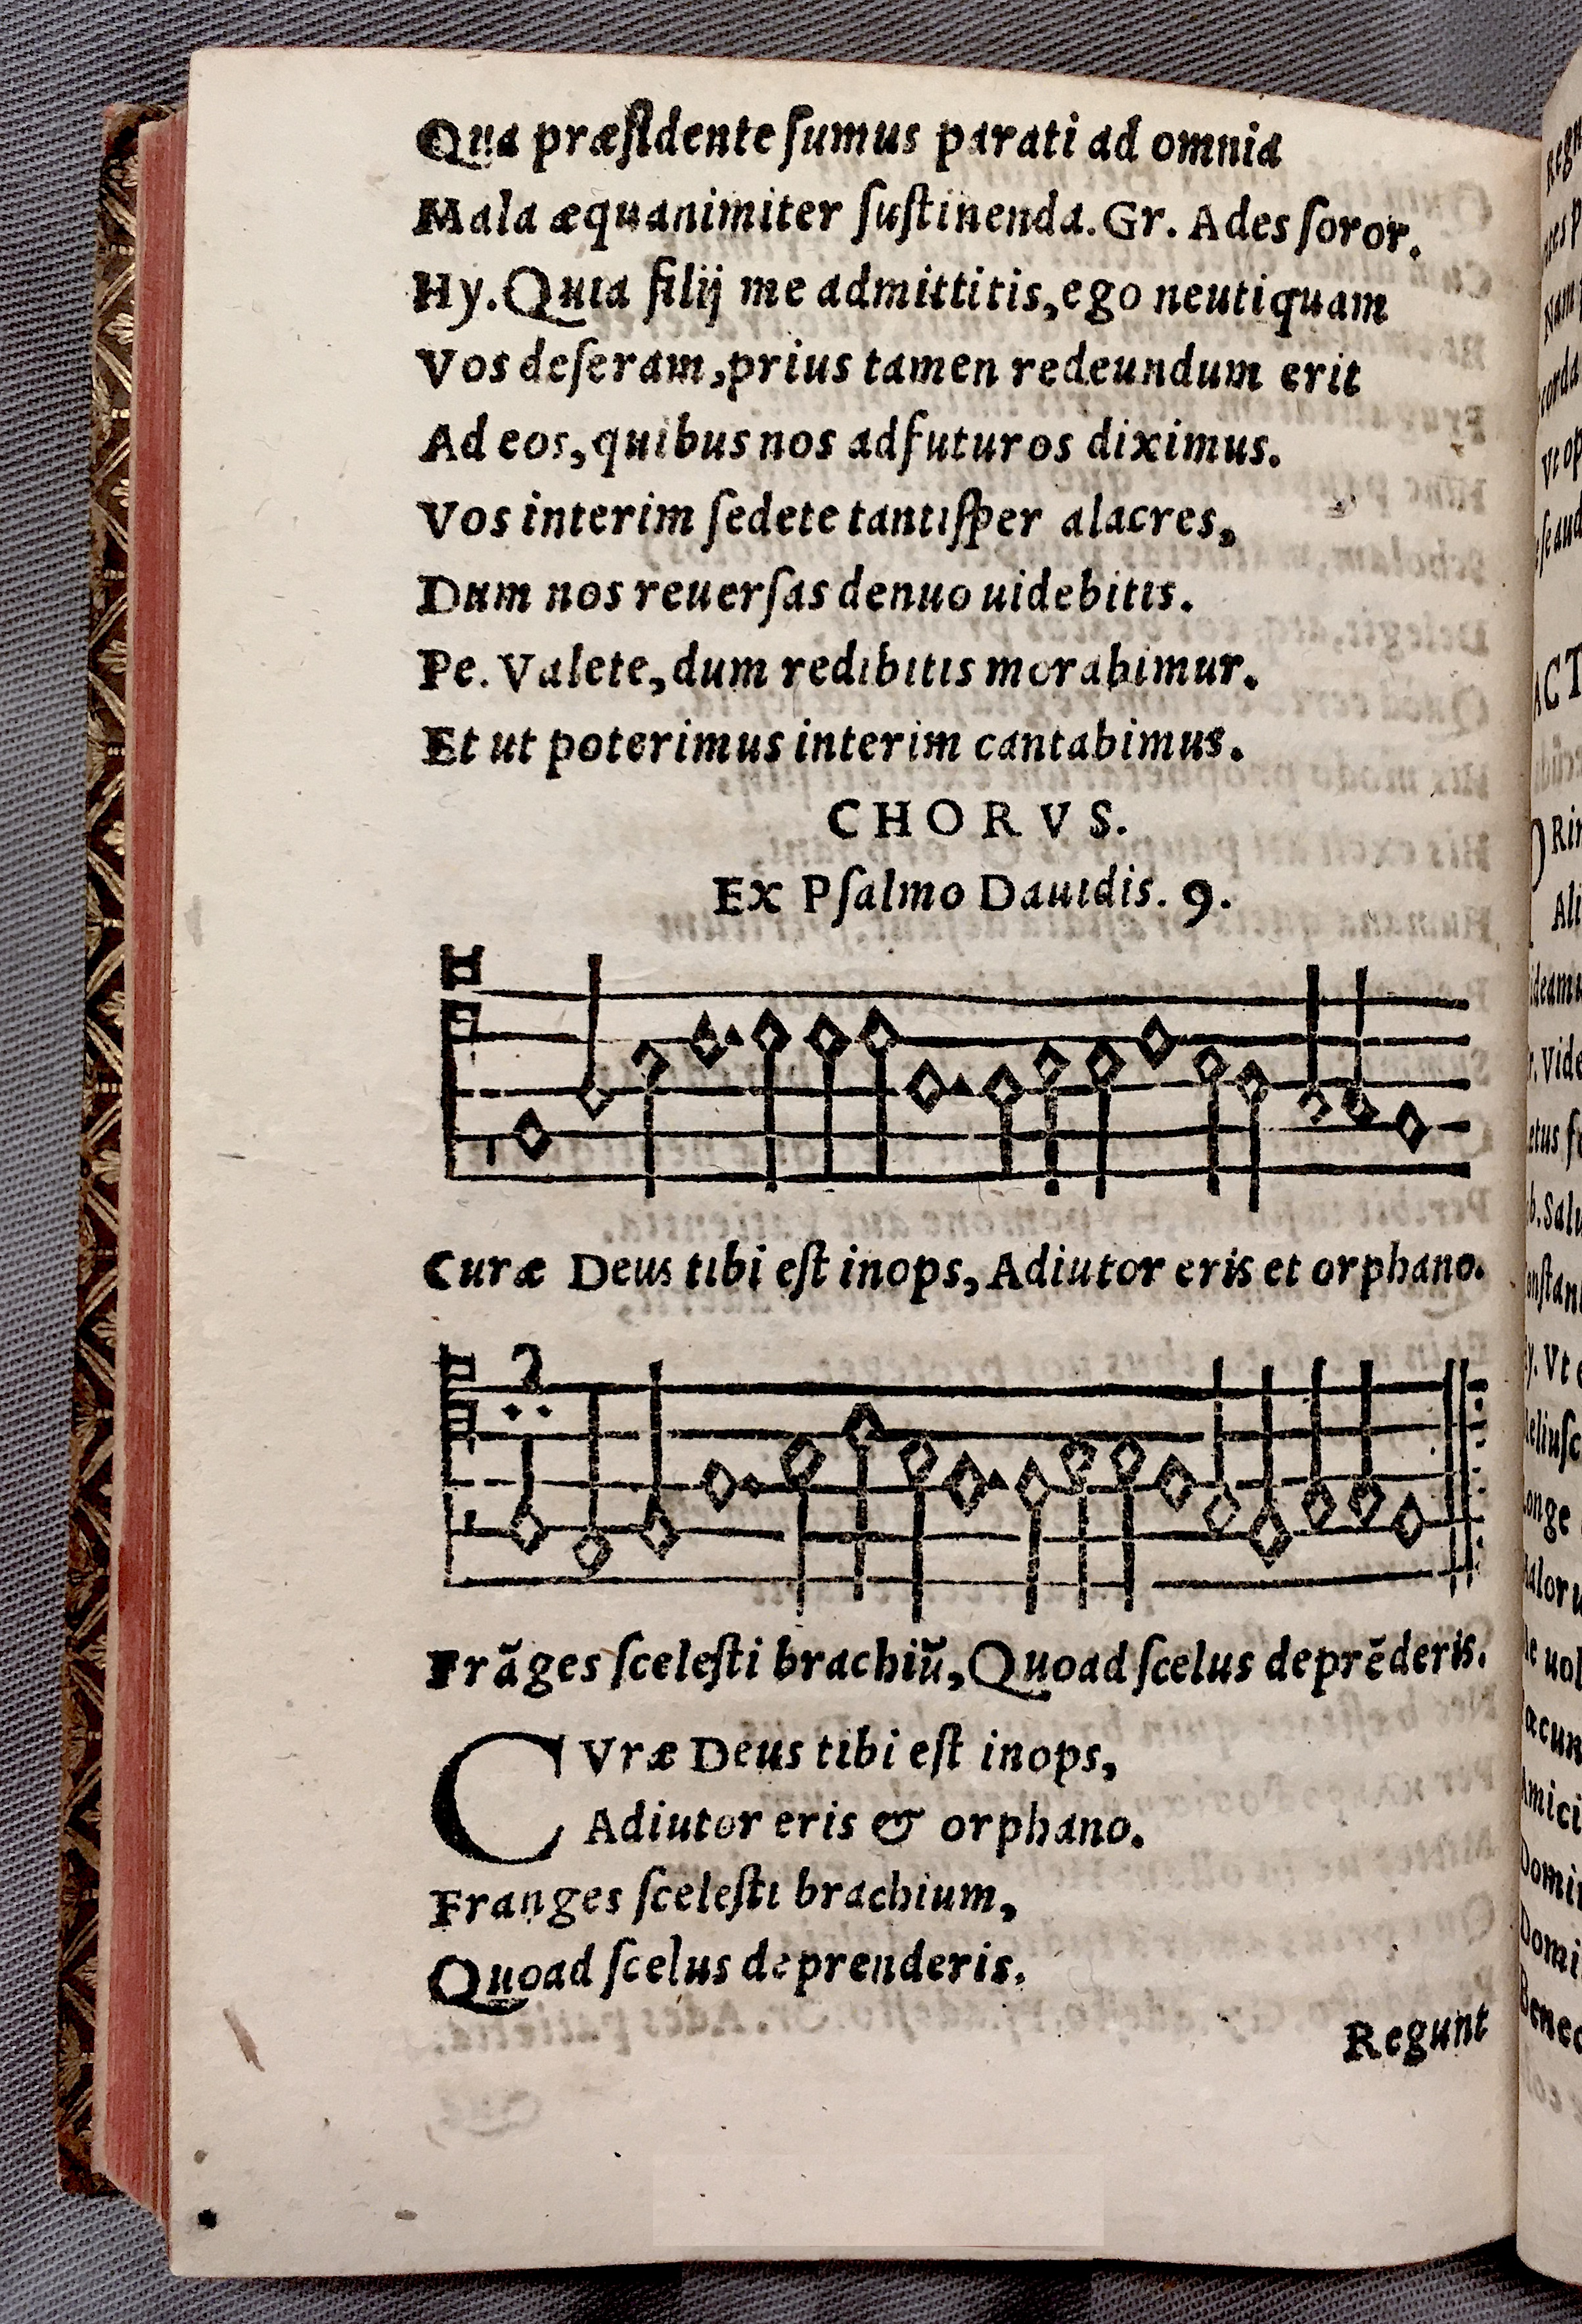 Qua præſidente ſumus parati ad omnia
Mala æquanimiter ſuſtinenda. Gr. Ades ſoror.
Hy. Quia filij me admittitis, ego neutiquam
Vos deſeram, prius tamen redeundum erit
Ad eos, quibus nos adfuturos diximus.
Vos interim ſedete tantiſper alacres,
Dum nos reuerſas denuo uidebitis.
Pe. Valete, dum redibitis morabimur.
Et ut poterimus interim cantabimus.
CHORVS.
Ex Pſalmo Dauidis. 9.
Curæ Deus tibi eſt inops, Adiutor eris et orphano.
Frãges ſceleſti brachiũ, Quoad ſcelus deprẽderis.
CVræ Deus tibi eſt inops,
Adiutor eris & orphano.
Franges ſceleſti brachium,
Quoad ſcelus deprenderis.
Regunt
ACT